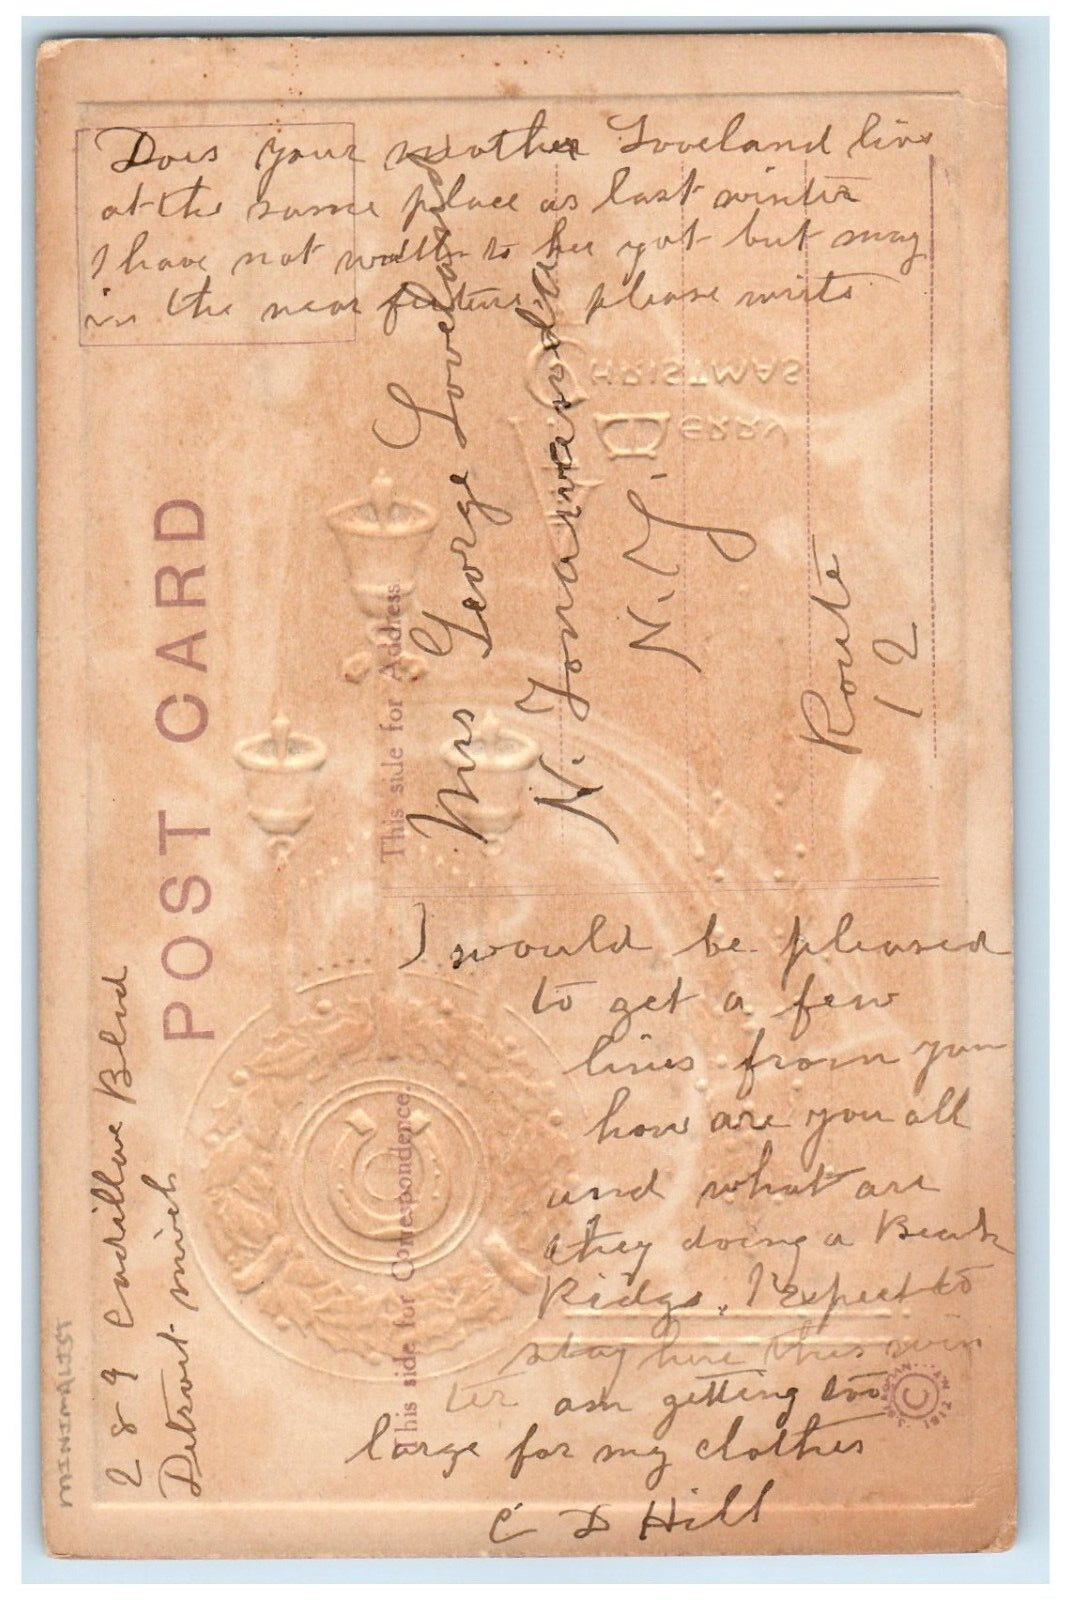 Does your mother Loveland live
at the same place as last winter
I have not to her yet but may
in the near future. please write
POST CARD
This side for Address
Mrs George Loveland
N. Tonawanda
N.Y.
Route
12
MERRY
CHRISTMAS
This side for Correspondence.
289 Cadillac Blvd
Detroit Mich
I would be pleased
to get a few
lines from you
how are you all
and what are
they doing a
Ridge. I expect to
stay here this win
ter am getting too
large for my clothes
C D Hill